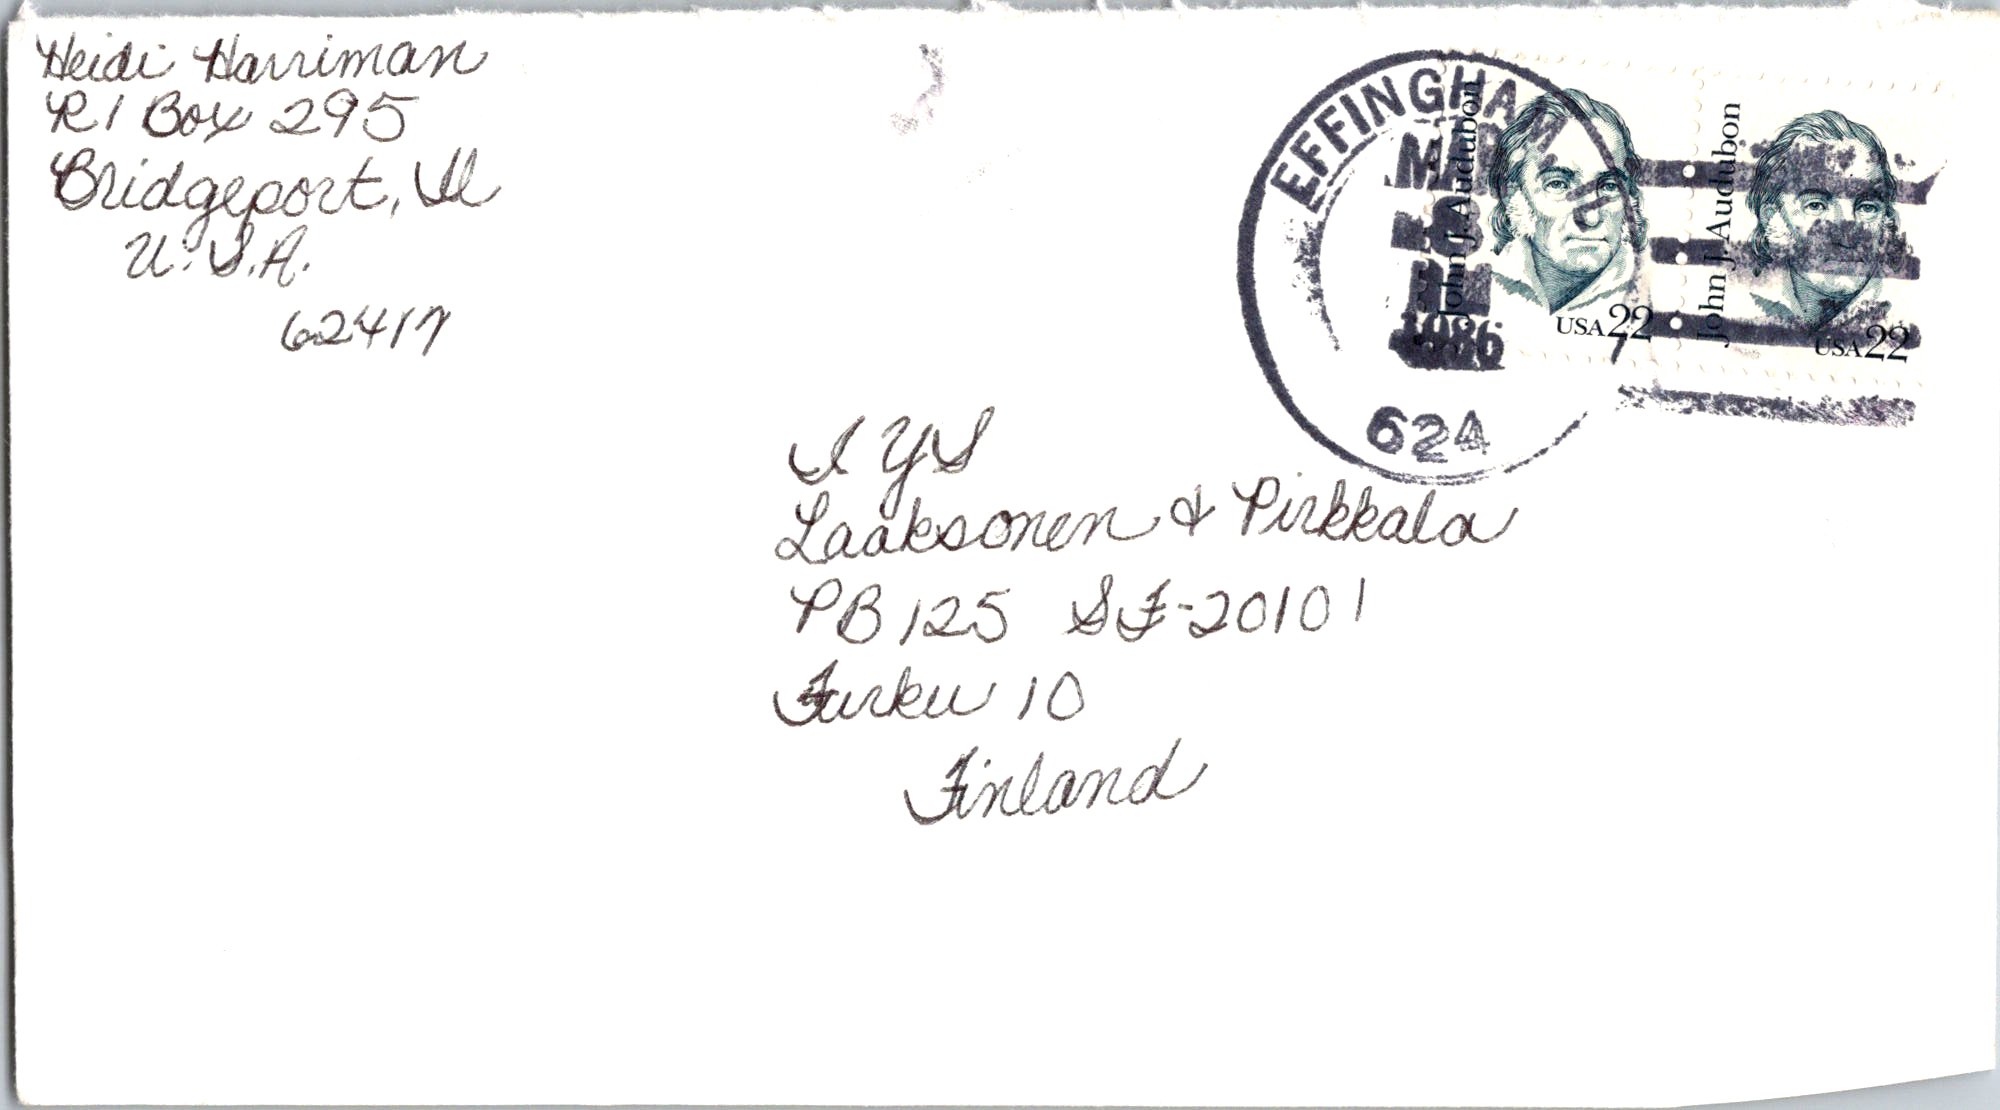 Heidi Harriman
R1 Box 295
Bridgeport, Il
U.S.A.
62417
EFFINGHAM, IL
MAR
1986
624
John J. Audubon
USA 22
John J. Audubon
USA 22
I Y S
Laaksonen & Pirkkala
PB 125 SF-20101
Turku 10
Finland